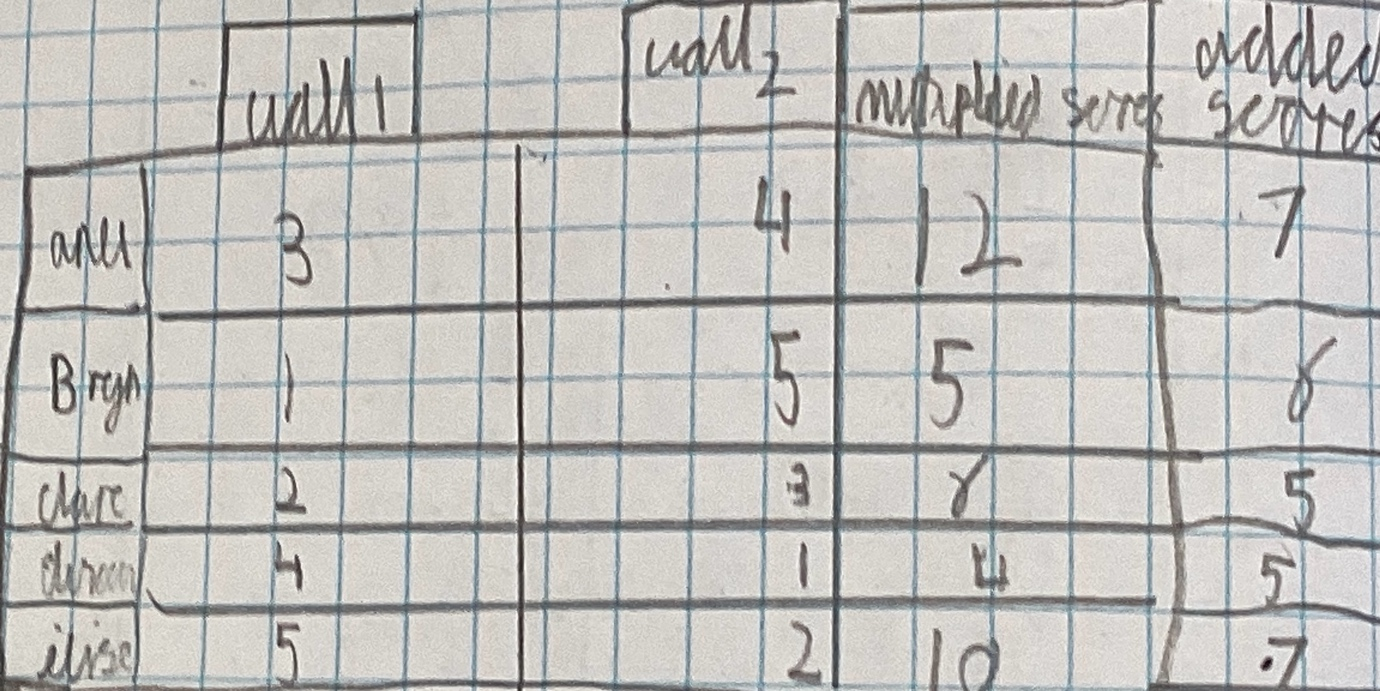 wall 1 wall 2 multiplied scores added scores
3 4 12 7
Bryn 1 5 5 6
clare 2 3 6 5
4 1 4 5
5 2 10 7